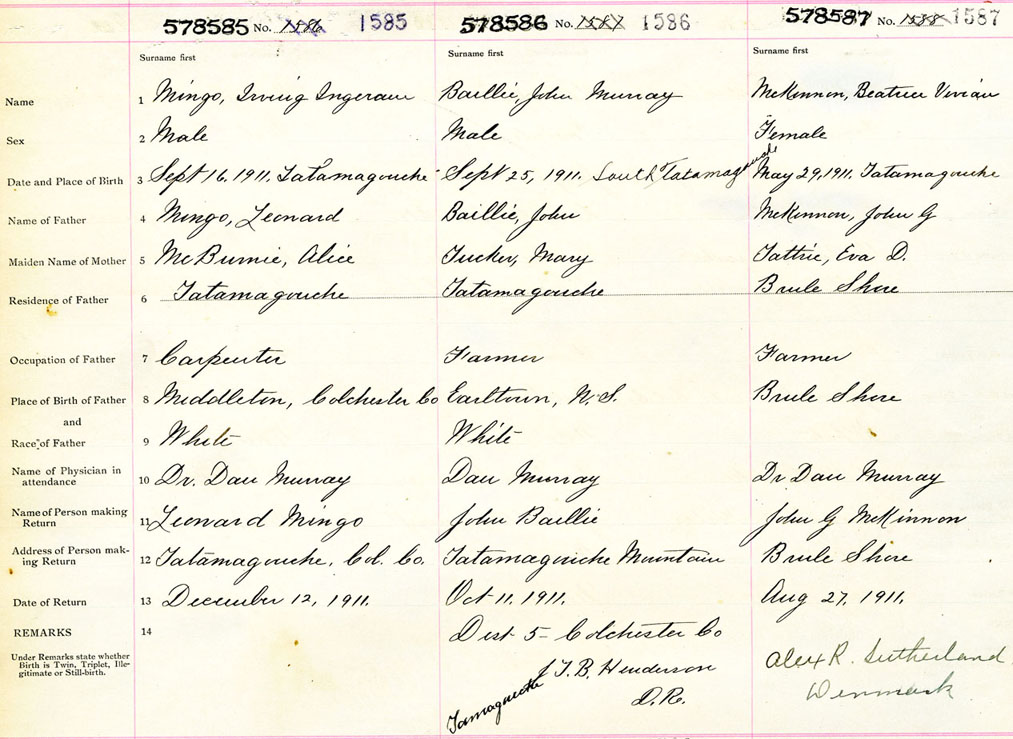 578585 No. 1585 578586 No. 1586 578587 No. 1587
Surname first Surname first Surname first
Name 1 Mingo, Irving Ingeram Baillie, John Murray McKinnon, Beatrice Vivian
Sex 2 Male Male Female
Date and Place of Birth 3 Sept 16, 1911, Tatamagouche Sept 25, 1911. South Tatamagouche May 29, 1911. Tatamagouche
Name of Father 4 Mingo, Leonard Baillie, John McKinnon, John G
Maiden Name of Mother 5 McBurnie, Alice Tucker, Mary Tattrie, Eva D.
Residence of Father 6 Tatamagouche Tatamagouche Brule Shore
Occupation of Father 7 Carpenter Farmer Farmer
Place of Birth of Father 8 Middleton, Colchester Co Earltown, N.S. Brule Shore
and
Race of Father 9 White White
Name of Physician in
attendance 10 Dr. Dan Murray Dan Murray Dr Dan Murray
Name of Person making
Return 11 Leonard Mingo John Baillie John G McKinnon
Address of Person mak-
ing Return 12 Tatamagouche, Col. Co. Tatamagouche Mountain Brule Shore
Date of Return 13 December 12, 1911. Oct 11. 1911. Aug 27, 1911.
REMARKS 14 Dist 5 - Colchester Co
Under Remarks state whether
Birth is Twin, Triplet, Ille-
gitimate or Still-birth.
J.T.B. Henderson Alex R. Sutherland
Tamagouche D.R. Denmark